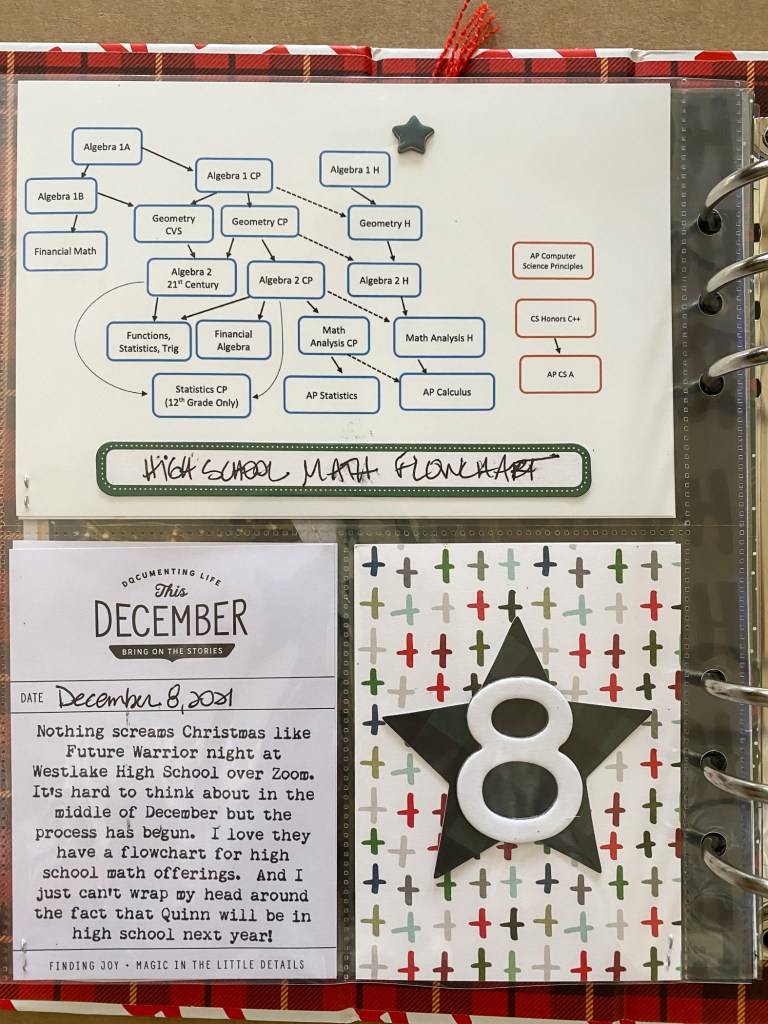 Algebra 1A
Algebra 1 CP
Algebra 1 H
Algebra 1B
Geometry
CVS
Geometry CP
Geometry H
Financial Math
Algebra 2
21st Century
Algebra 2 CP
Algebra 2 H
AP Computer
Science Principles
Functions,
Statistics, Trig
Financial
Algebra
Math
Analysis CP
Math Analysis H
CS Honors C++
Statistics CP
(12th Grade Only)
AP Statistics
AP Calculus
AP CS A
HIGH SCHOOL MATH FLOWCHART
DOCUMENTING LIFE
This
DECEMBER
BRING ON THE STORIES
DATE December 8, 2021
Nothing screams Christmas like
Future Warrior night at
Westlake High School over Zoom.
It's hard to think about in the
middle of December but the
process has begun. I love they
have a flowchart for high
school math offerings. And I
just can't wrap my head around
the fact that Quinn will be in
high school next year!
FINDING JOY • MAGIC IN THE LITTLE DETAILS
8